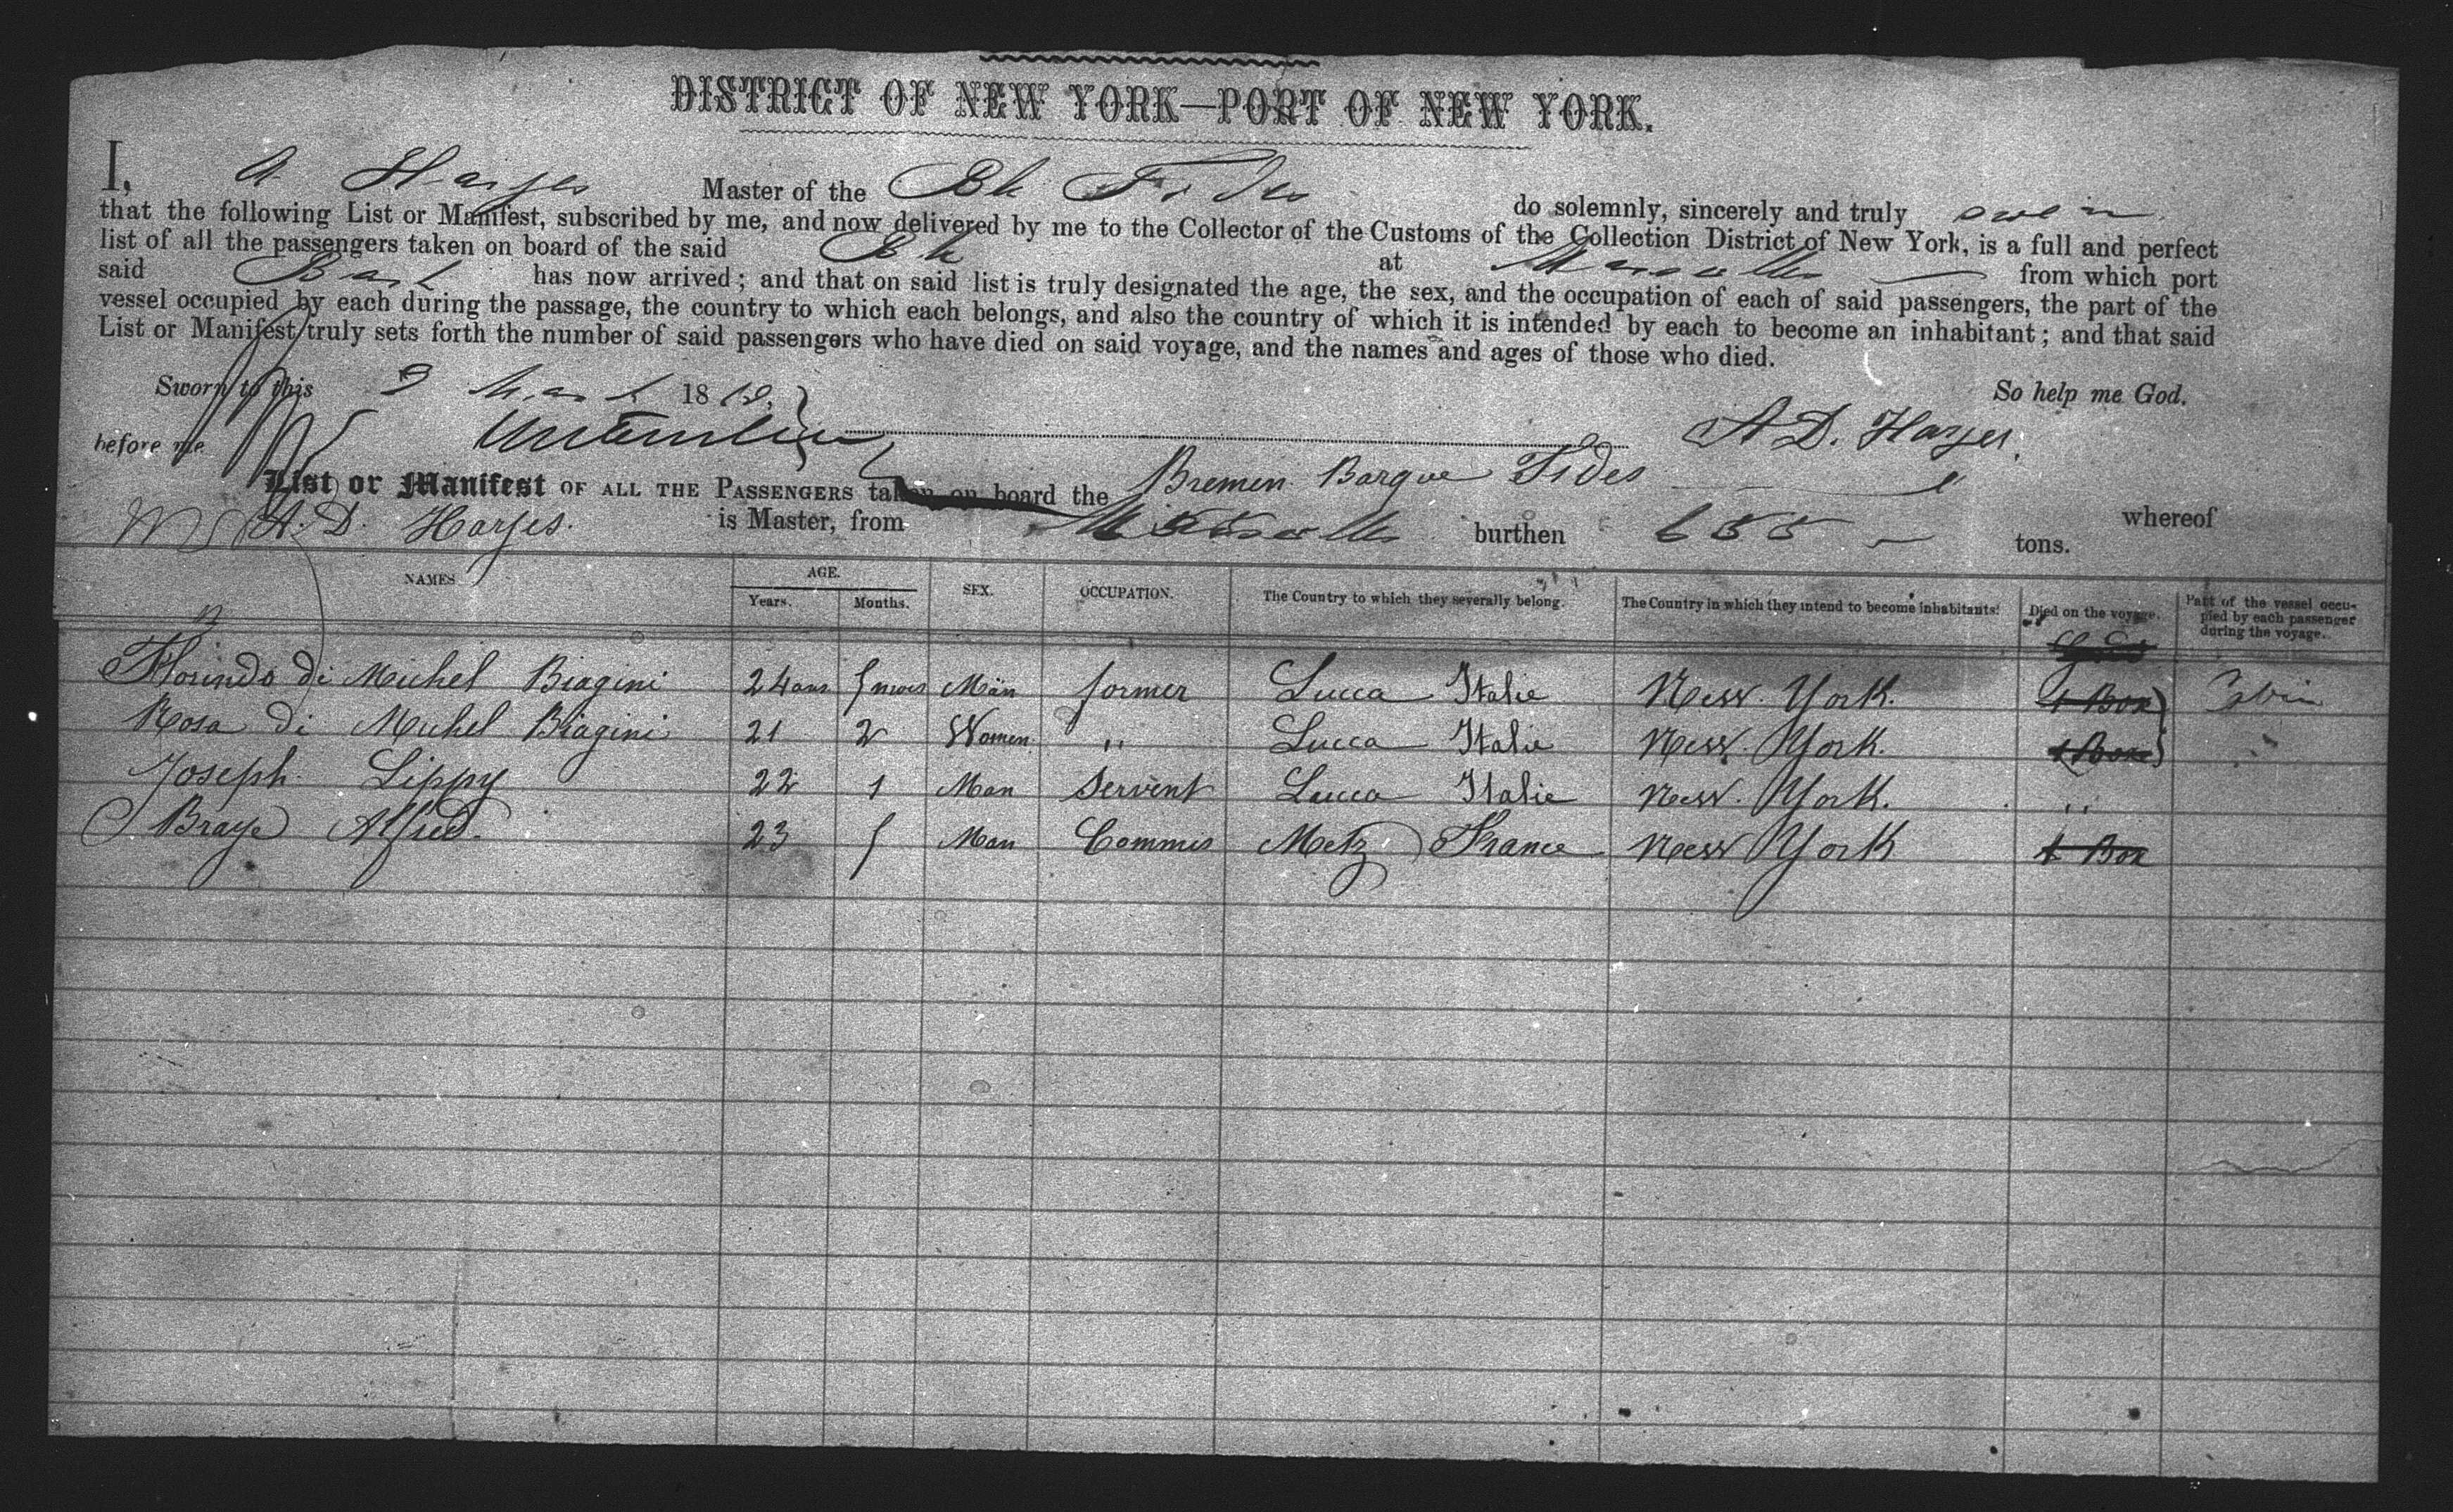 DISTRICT OF NEW YORK—PORT OF NEW YORK.
I, A Harjes Master of the Bk Fides do solemnly, sincerely and truly swear
that the following List or Manifest, subscribed by me, and now delivered by me to the Collector of the Customs of the Collection District of New York, is a full and perfect
list of all the passengers taken on board of the said Bk at Marseilles from which port
said Bark has now arrived; and that on said list is truly designated the age, the sex, and the occupation of each of said passengers, the part of the
vessel occupied by each during the passage, the country to which each belongs, and also the country of which it is intended by each to become an inhabitant; and that said
List or Manifest truly sets forth the number of said passengers who have died on said voyage, and the names and ages of those who died.
So help me God.
Sworn to this 9 March 18
before me
A D. Harjes.
List or Manifest OF ALL THE PASSENGERS taken on board the Bremen Barque Fides whereof
A. D. Harjes. is Master, from Marseilles burthen 655 tons.
NAMES AGE. Years. Months. SEX. OCCUPATION. The Country to which they severally belong. The Country in which they intend to become inhabitants. Died on the voyage. Part of the vessel occupied by each passenger during the voyage.
Florindo di Michel Biagini 24 ans 5 mois Man former Lucca Italie New. York. 1 Box
Rosa di Michel Biagini 21 2 Women " Lucca Italie New. York. 1 Box "
Joseph Lippy 22 1 Man Servent Lucca Italie New. York. "
Braye Alfred. 23 5 Man Commis Metz France New York 1 Box